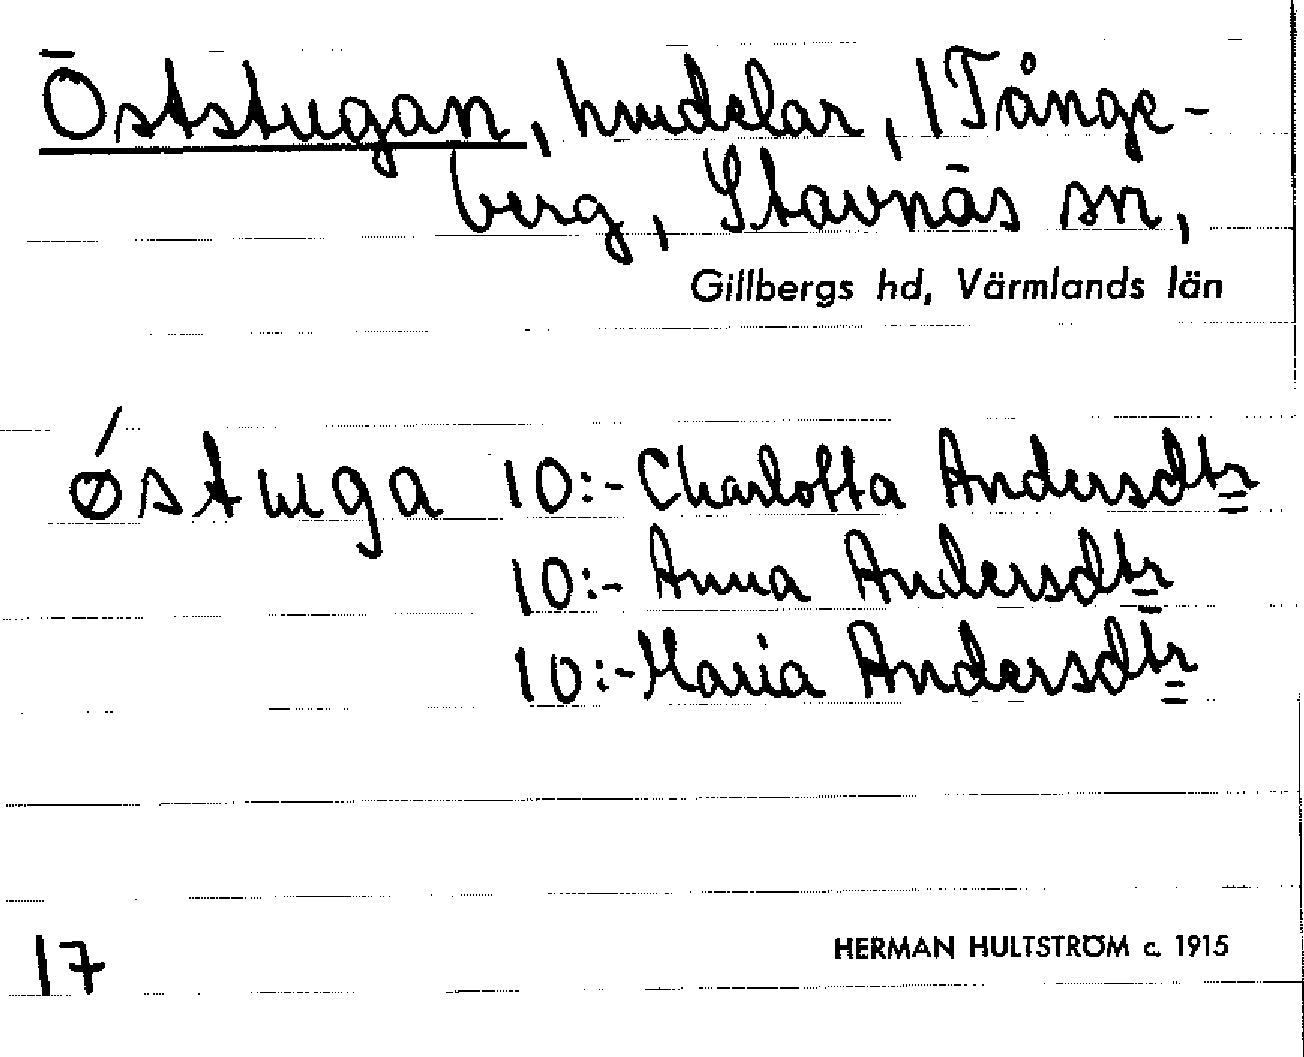 Öststugan, hmdelar, 1 Tånge-
berg, Stavnäs sn,
Gillbergs hd, Värmlands län
ǿstuga 10:- Charlotta Andersdtr
10:- Anna Andersdtr
10:- Maria Andersdtr
17
HERMAN HULTSTRÖM c. 1915